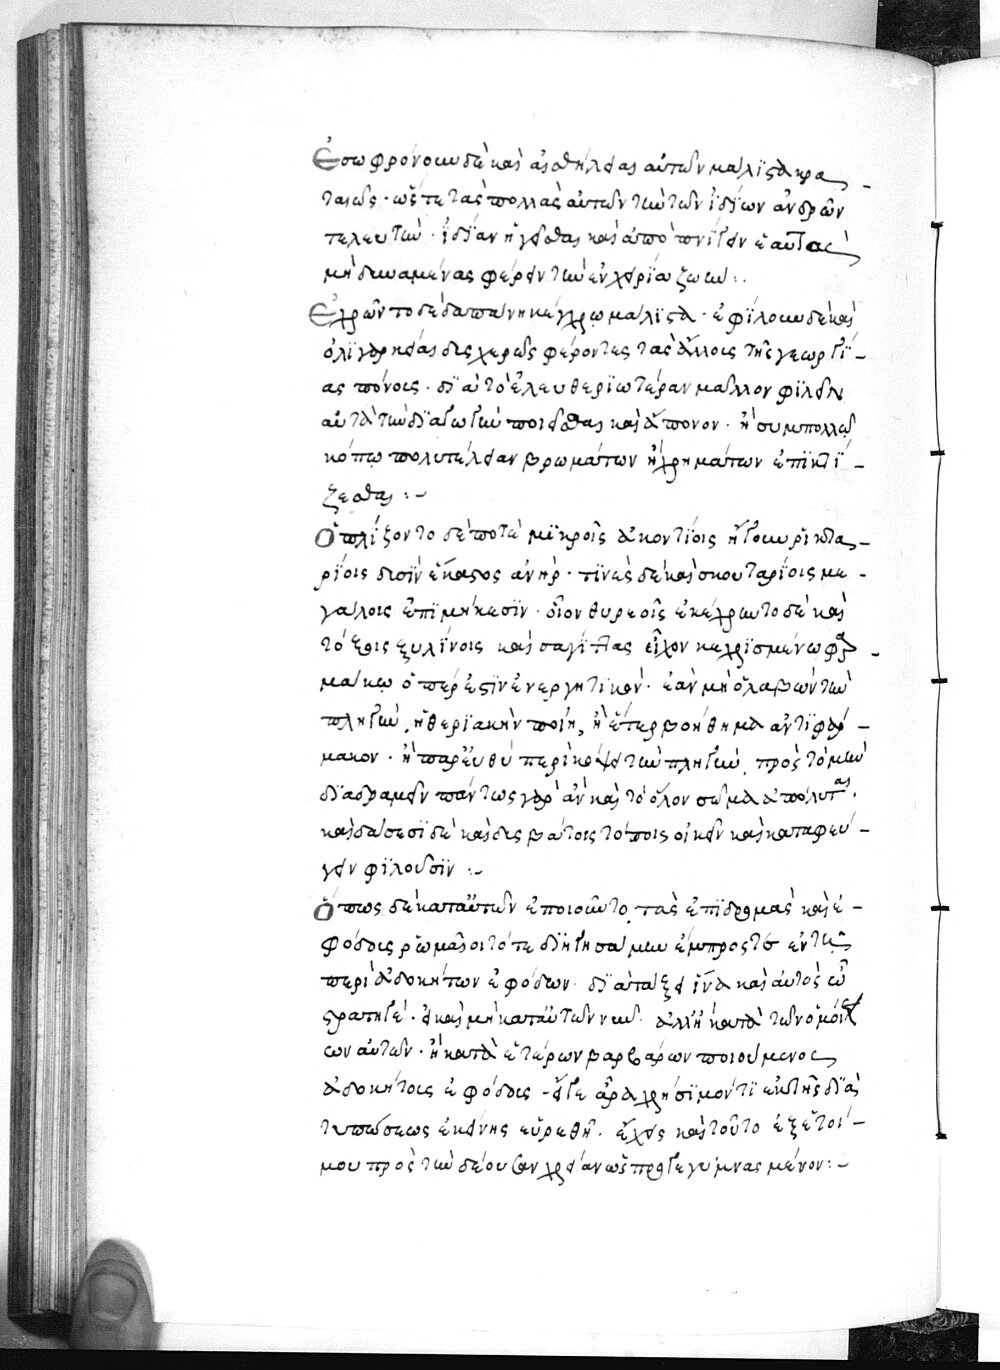 Ἐσωφρόνουν δὲ καὶ αἱ θήλειαι αὐτῶν μάλιστα κρα
ταιῶς· ὥστε τὰς πολλὰς αὐτῶν τὴν τῶν ἰδίων ἀνδρῶν
τελευτὴν· ἰδίαν ἡγεῖσθαι καὶ ἀποπνίγειν ἑαυτὰς
μὴ δυναμένας φέρειν τὴν ἐν χηρεία ζωὴν :.
Ἐχρῶντο δὲ δαπάνη κέγχρω μάλιστα· ἐφίλουν δὲ καὶ
ὀλιγάρκειαν δυσχερῶς φέροντες τὰς ἄλλοις τῆς γεωργί–
ας πόνοις· διὰ τὸ ἐλευθεριωτέραν μᾶλλον φιλεῖν
αὐτὰ τὴν διαγωγὴν ποιεῖσθαι καὶ ἄπονον· ἢ σὺν πολλῶ
κόπω πολυτέλειαν βρωμάτων ἢ χρημάτων ἐπικτί–
ζεσθαι :–
Ὁπλίζοντο δέ ποτε μικροῖς ἀκοντίοις ἤγουν ῥικτα–
ρίοις δυσὶν ἕκαστος ἀνήρ· τινὲς δὲ καὶ σκουταρίοις με–
γάλοις ἐπιμήκεσιν· οἷον θυρεοῖς ἐκέχρωντο δὲ καὶ
τόξοις ξυλίνοις καὶ σαγίττας εἶχον κεχρισμένω φαρ–
μάκω ὅπερ ἐστὶν ἐνεργητικὸν· ἐὰν μὴ ὁ λαβὼν τὴν
πληγὴν, ἢ θηριακὴν ποίη, ἢ ἕτερ βοήθημα ἀντιφάρ–
μακον· ἢ παρευθὺ περικόψει τὴν πληγὴν, πρὸς τὸ μὴ
διαδραμεῖν πάντως γὰρ ἂν καὶ τὸ ὅλον σῶμα ἀπόλυται·
καὶ δάσεσι δὲ καὶ δυσβάτοις τόποις οἰκεῖν καὶ καταφεύ–
γειν φιλοῦσιν :–
Ὅπως δὲ κατ' αὐτῶν ἐποιοῦντο τὰς ἐπιδρομὰς καὶ ἐ–
φόδους ῥωμαῖοι τότε διήγησάμην ἔμπροσθεν ἐν τῆ
περὶ ἀδοκήτων ἐφόδων· διατάξει ἵνα καὶ αὐτὸς ὦ
στρατηγέ· εἰ καὶ μὴ κατ' αὐτῶν νῦν· ἀλλ' ἢ κατὰ τῶν ὁμοί
ων αὐτῶν· ἢ κατὰ ἑτέρων βαρβάρων ποιούμενος
ἀδοκήτους ἐφόδους εἴγε ἄρα χρήσιμόν τι ἐκ τῆς δια
τυπώσεως ἐκείνης εὑρεθῆ· ἔχεις καὶ τοῦτο ἐξ ἑτοί–
μου πρὸς τὴν δέουσαν χρείαν ὡς προγεγυμνασμένον :–